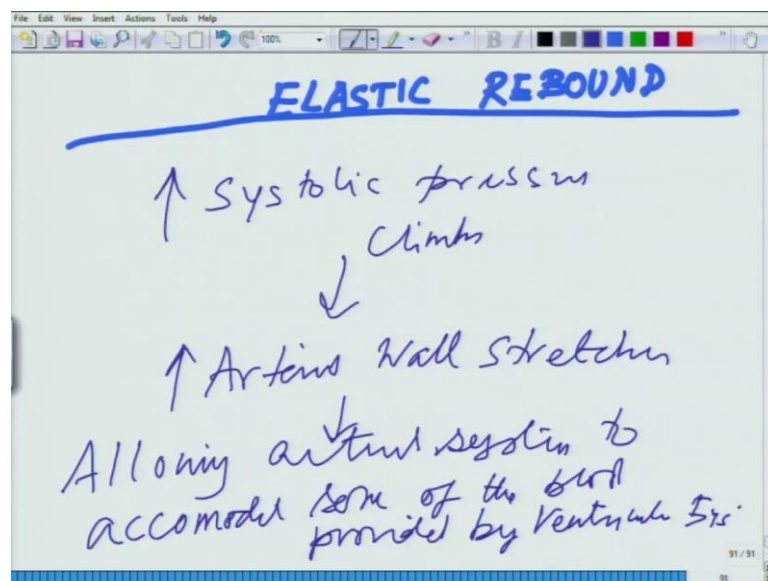 File Edit View Insert Actions Tools Help
100%
ELASTIC REBOUND
↑ Systolic pressure
Climbs
↓
↑ Arteries Wall Stretches
↓
Allowing arterial system to
accomodet some of the blood
provided by Ventricular Sys
91 / 91
91